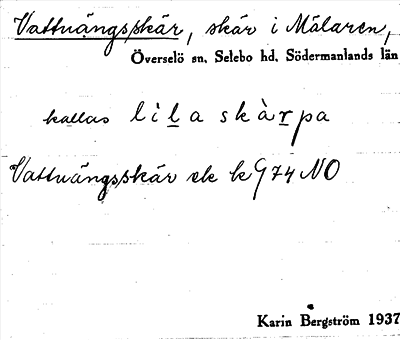 Vattuängsskär, skär i Mälaren,
Överselö sn. Selebo hd. Södermanlands län
kallas lìla skàrpa
Vattuängsskär ek bl 974 NO
Karin Bergström 1937